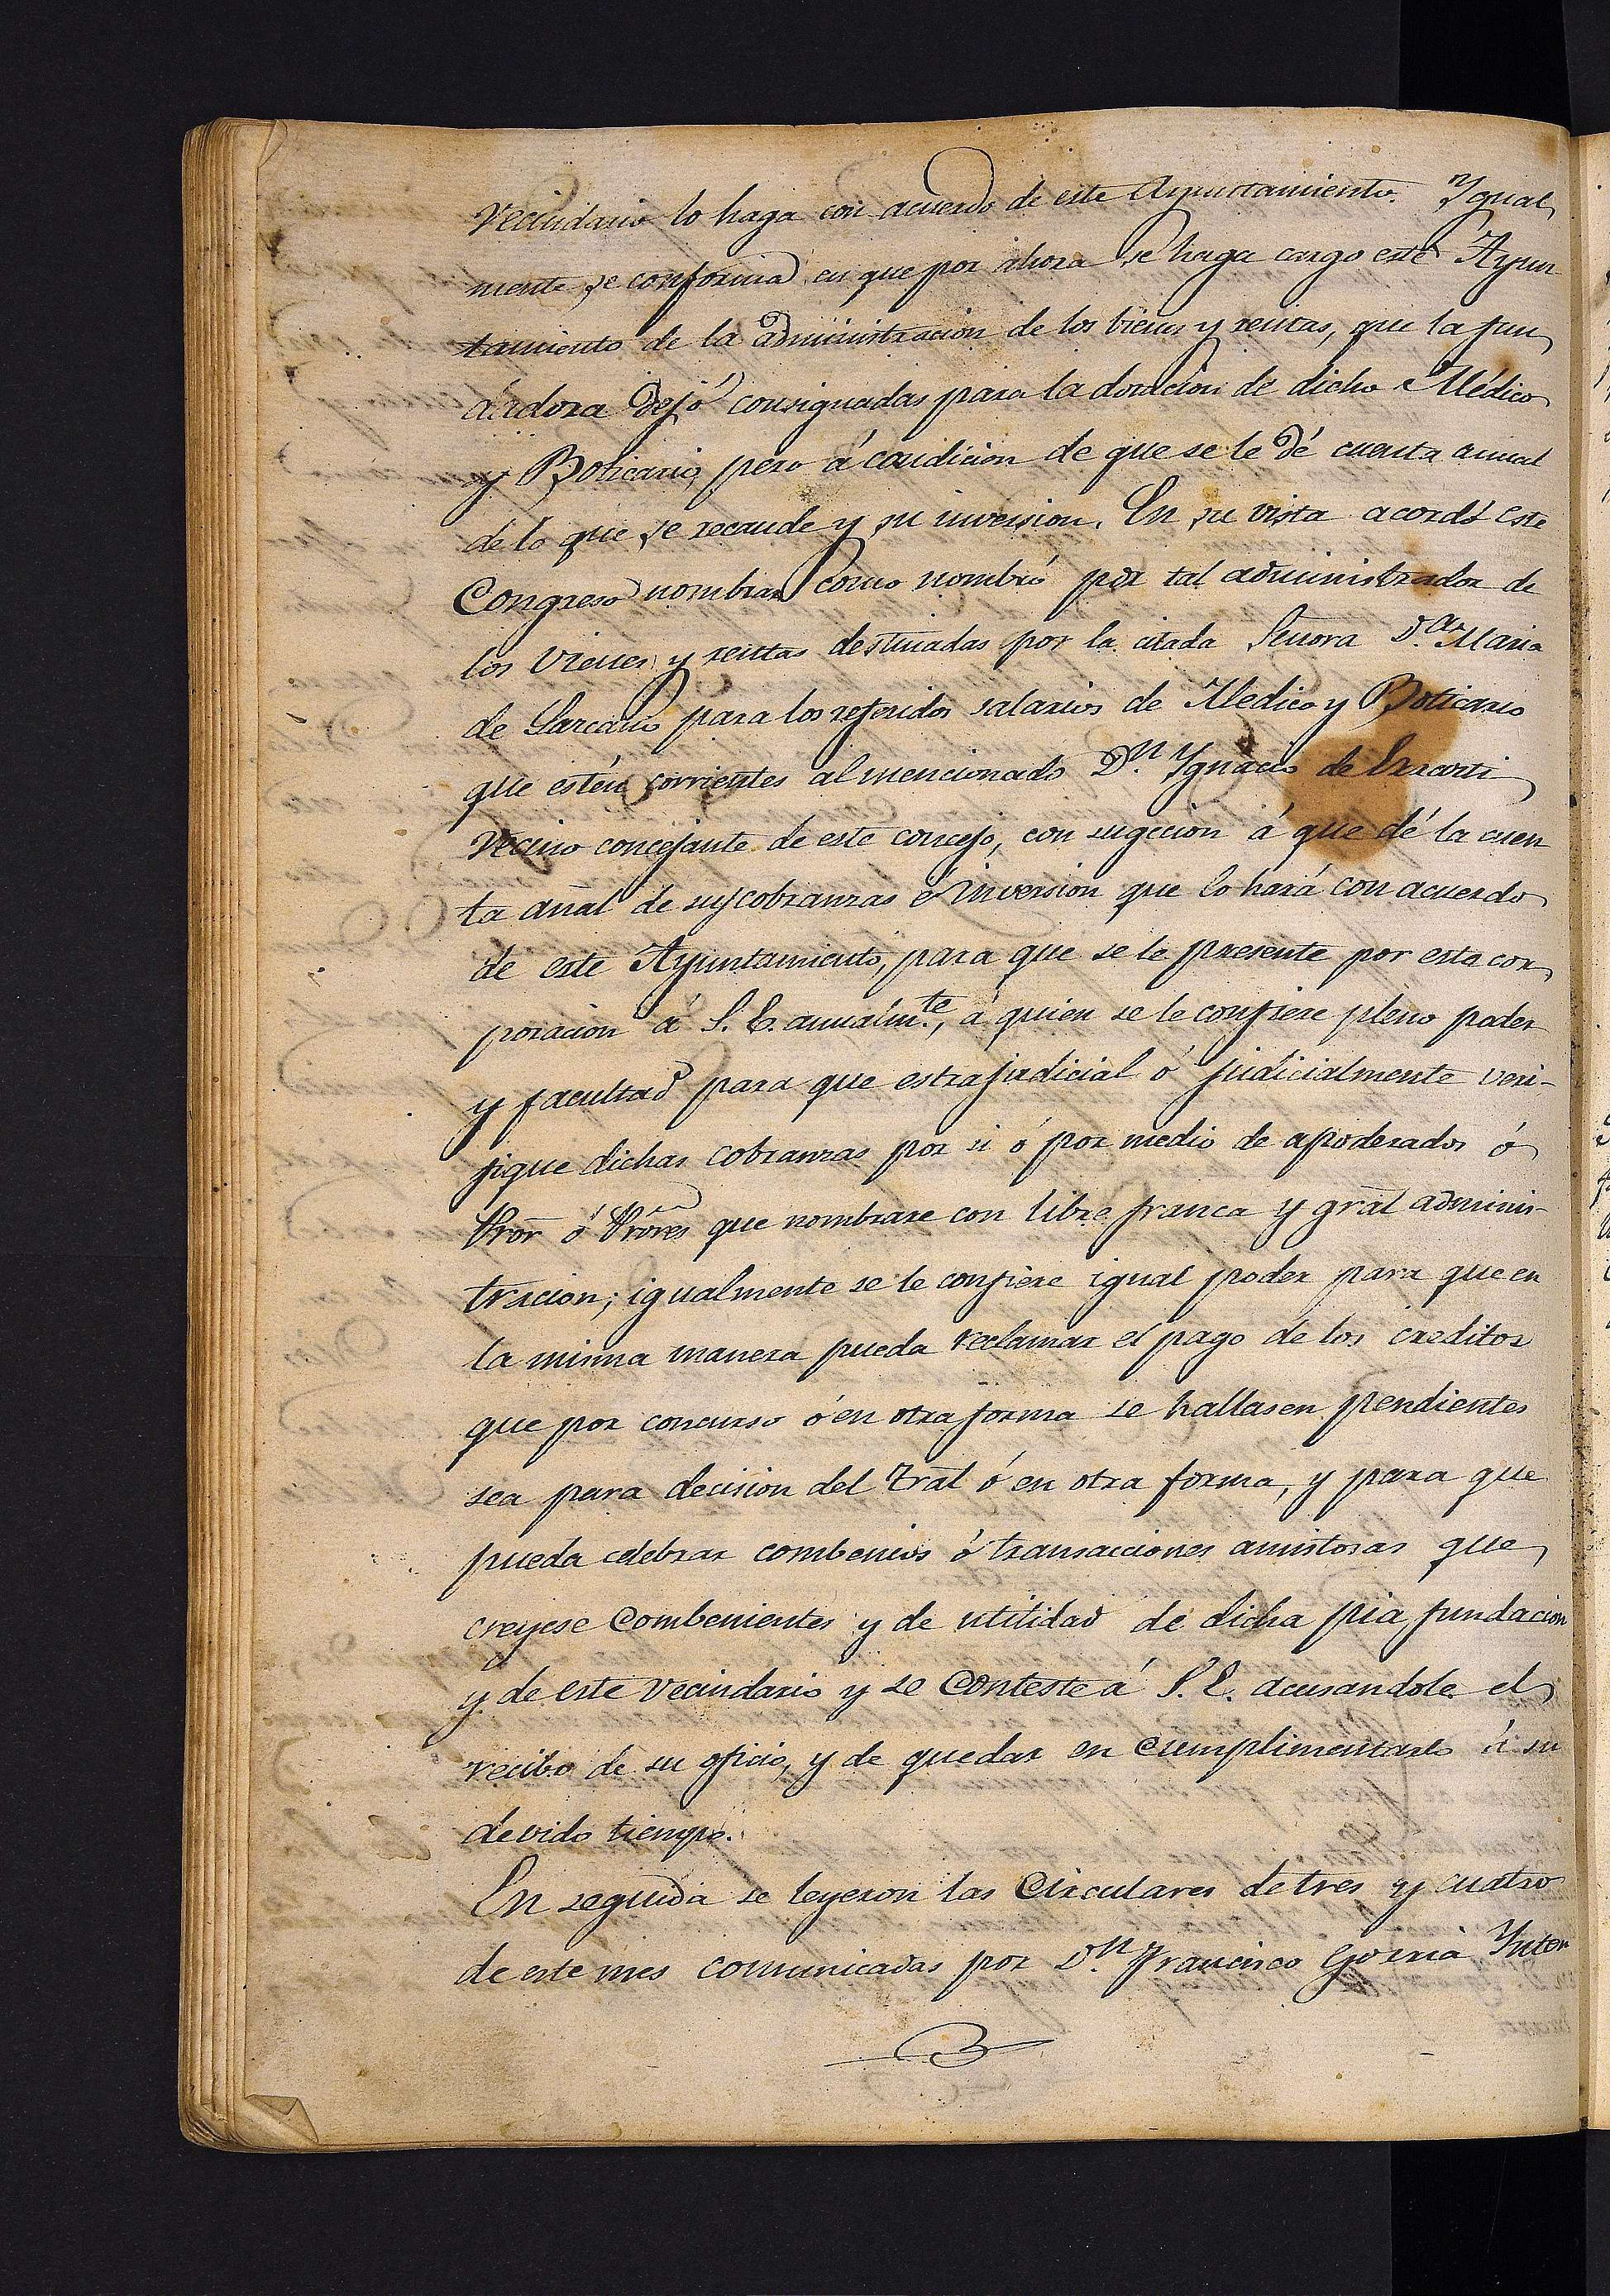 Vecindario lo haga con acuerdo de este Ayuntamiento. Ygual
mente se conforma en que por ahora se haga cargo este Ayun
tamiento de la administracion de los bienes y rentas, que la fun
dadora dejó consignadas para la dotacion de dicho Médico
y Boticario, pero á condicion de que se le dé cuenta anual
de lo que se recaude y su inversion. En su vista acordó este
Congreso nombrar como nombró por tal administrador de
los vienes y rentas destinadas por la citada Señora D.ª Maria
de Larcano para los referidos salarios de Medico y Boticario
que estén corrientes al mencionado D.n Ygnacio de
vecino concejante de este concejo, con sugecion á que dé la cuen
ta añal de sus cobranzas é inversion que lo hará con acuerdo
de este Ayuntamiento, para que se le presente por esta cor
poracion á S. E. anualm.te, á quien se le confiere pleno poder
y facultad para que estrajudicial ó judicialmente veri-
fique dichas cobranzas por si ó por medio de apoderados ó
Pror ó Prores que nombrare con libre franca y gral adminis-
tracion; igualmente se le confiere igual poder para que en
la misma manera pueda reclamar el pago de los creditos
que por concurso ó en otra forma se hallasen pendientes
sea para decision del Tral ó en otra forma, y para que
pueda celebrar combenios ó transacciones amistosas que
creyese combenientes y de utilidad de dicha pia fundacion
y de este vecindario y se conteste á S. E. acusandole el
recibo de su oficio, y de quedar en cumplimentarlo á su
devido tiempo.
En seguida se leyeron las Circulares de tres y cuatro
de este mes comunicadas por D.n Francisco Goerria Inten